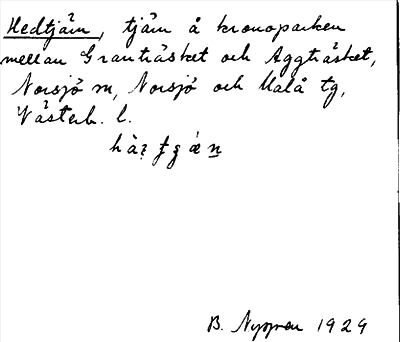 Hedtjärn, tjärn å kronoparken
mellan Granträsket och Aggträsket,
Norsjö sn, Norsjö och Malå tg,
Västerb. l.
B. Nygren 1929